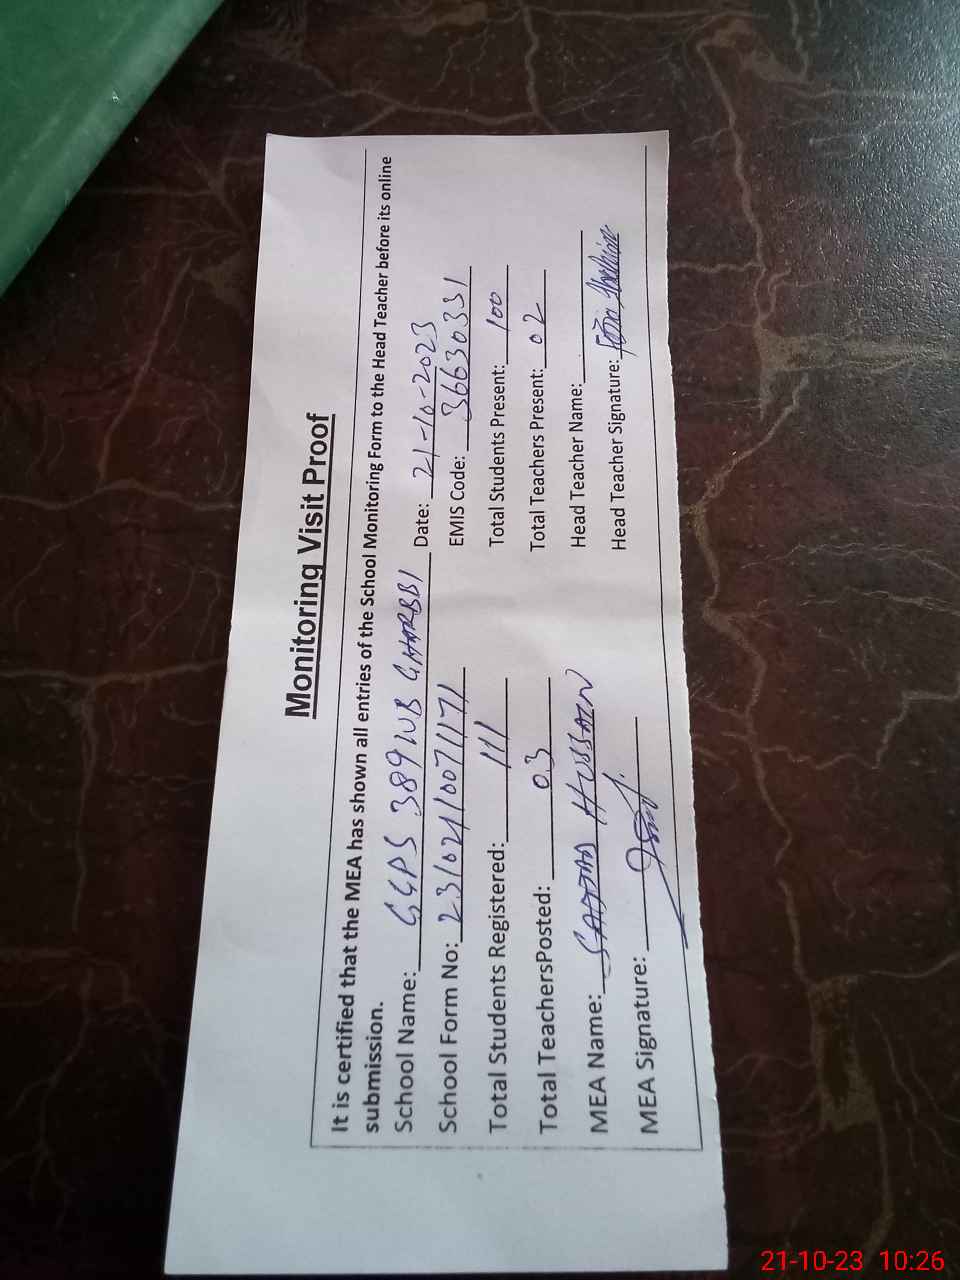 Monitoring Visit Proof
It is certified that the MEA has shown all entries of the School Monitoring Form to the Head Teacher before its online
submission.
School Name: GGPS 389 WB GHARBBI Date: 21-10-2023
School Form No: 231021100711171 EMIS Code: 36630331
Total Students Registered: 111 Total Students Present: 100
Total TeachersPosted: 03 Total Teachers Present: 02
MEA Name: SAJJAD HUSSAIN Head Teacher Name:
MEA Signature: Head Teacher Signature:
21-10-23 10:26